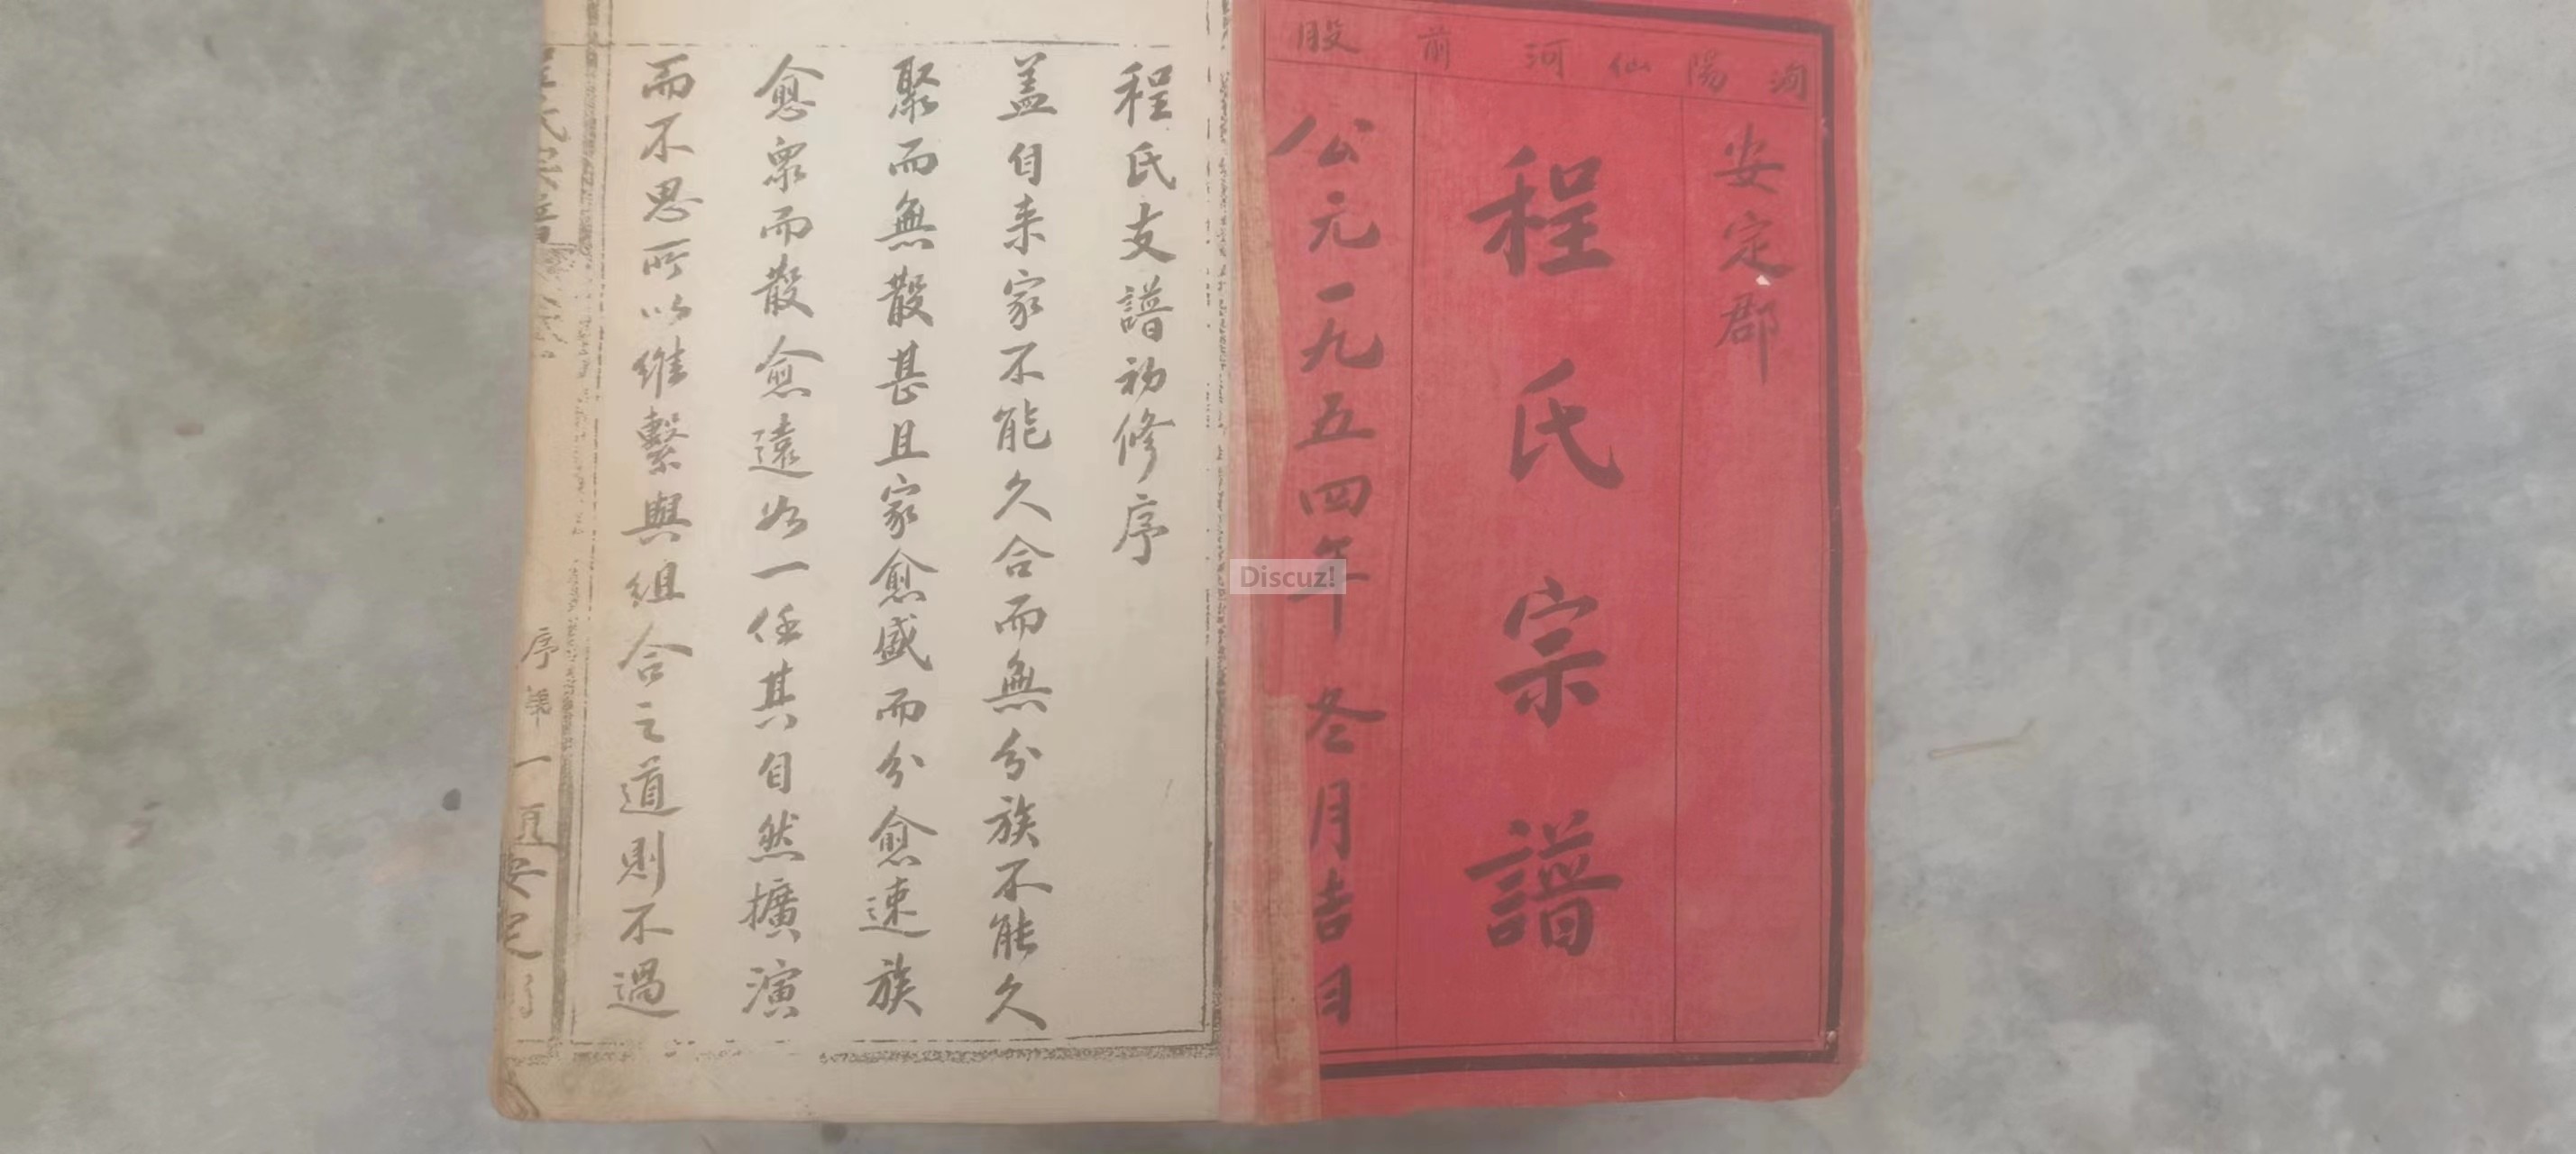 洵陽仙河前股
安定郡
程氏宗譜
公元一九五四年冬月吉日
程氏支譜初修序
盖自来家不能久合而無分族不能久
聚而無散甚且家愈盛而分愈速族
愈眾而散愈遠如一任其自然擴演
而不思所以維繫與組合之道則不過
程氏宗譜
序
第一頁
安定
Discuz!